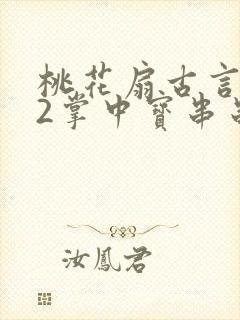 桃花扇古言
2掌中寳串
汝鳳君